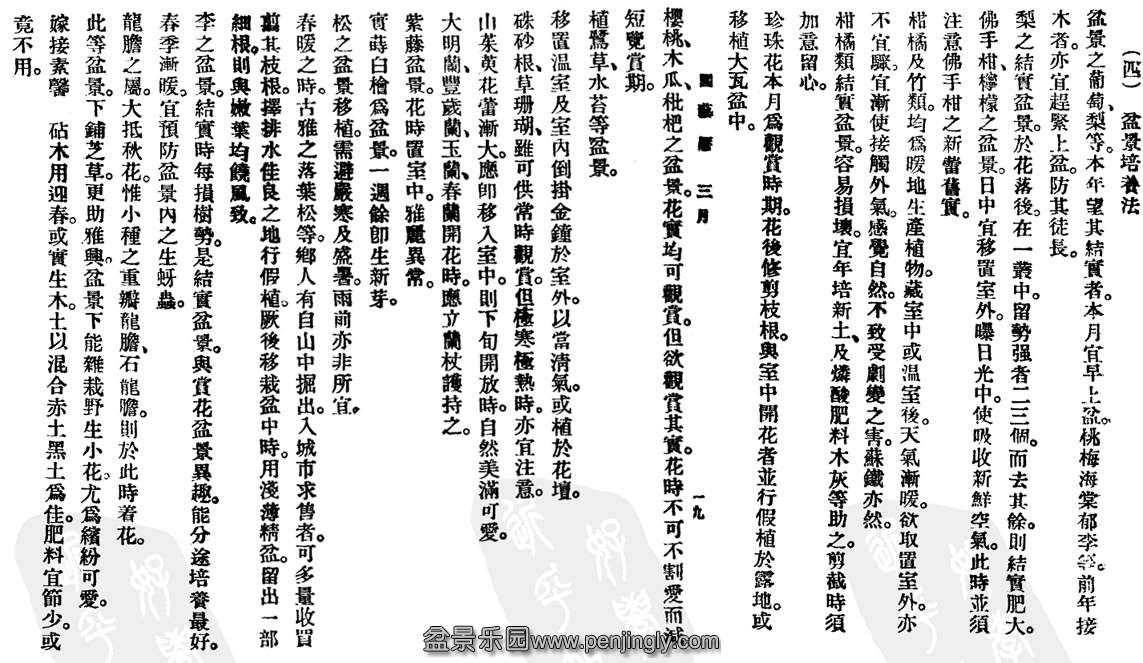 (四) 盆景培養法
盆景之葡萄、梨等、本年望其結實者、本月宜早上盆。桃梅海棠郁李等、前年接
木者、亦宜趕緊上盆、防其徒長。
梨之結實盆景、於花落後、在一叢中、留勢强者二三個、而去其餘、則結實肥大。
佛手柑、檸檬之盆景、日中宜移置室外、曝日光中、使吸收新鮮空氣、此時並須
注意佛手柑之新蕾舊實。
柑橘及竹類、均爲暖地生產植物、藏室中或温室後、天氣漸暖、欲取置室外、亦
不宜驟、宜漸使接觸外氣、感覺自然、不致受劇變之害。蘇鐵亦然。
柑橘類結實盆景、容易損壞、宜年培新土、及燐酸肥料木灰等助之。剪截時須
加意留心。
珍珠花本月爲觀賞時期、花後修剪枝根、與室中開花者並行假植於露地、或
移植大瓦盆中。
園藝曆 三月
一九
櫻桃、木瓜、枇杷之盆景、花實均可觀賞、但欲觀賞其實、花時不可不割愛而減
短覽賞期。
植鷺草、水苔等盆景。
移置温室及室內倒掛金鐘於室外、以當清氣、或植於花壇。
硃砂根、草珊瑚、雖可供常時觀賞、但極寒極熱時、亦宜注意。
山茱萸花蕾漸大、應卽移入室中、則下旬開放時、自然美滿可愛。
大明蘭、豐歲蘭、玉蘭、春蘭開花時、應立蘭杖護持之。
紫藤盆景、花時置室中、雅麗異常。
實蒔白檜爲盆景、一週餘卽生新芽。
松之盆景移植、需避嚴寒及盛暑、雨前亦非所宜。
春暖之時、古雅之落葉松等、鄉人有自山中掘出、入城市求售者、可多量收買
翦其枝根、擇排水佳良之地行假植、厥後移栽盆中時、用淺薄精盆、留出一部
細根、則與嫩葉均饒風致。
李之盆景、結實時每損樹勢、是結實盆景、與賞花盆景異趣、能分途培養最好。
春季漸暖、宜預防盆景內之生蚜蟲。
龍膽之屬、大抵秋花、惟小種之重瓣龍膽、石龍膽、則於此時着花。
此等盆景、下鋪芝草、更助雅興、盆景下能雜栽野生小花、尤爲繽紛可愛。
嫁接素馨 砧木用迎春、或實生木、土以混合赤土黑土爲佳、肥料宜節少、或
竟不用。
盆景乐园www.penjingly.com